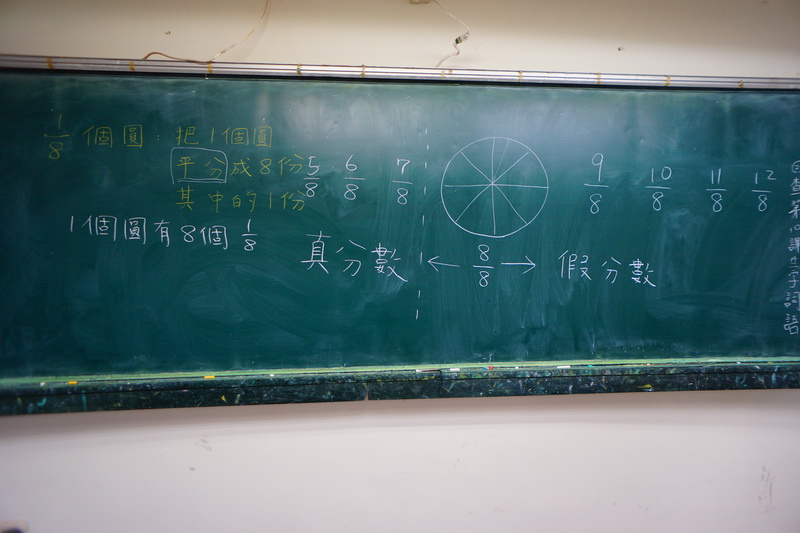 1/8 個圓:把1個圓
平分成8份
其中的1份
1個圓有8個 1/8
5/8 6/8 7/8
真分數 ← 8/8 → 假分數
9/8 10/8 11/8 12/8
回查第心課生字詞語